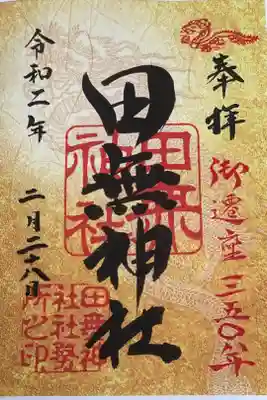 奉拝
御遷座三五〇年
田無神社
田無神社
令和二年
二月二十八日
田無神社社務所之印